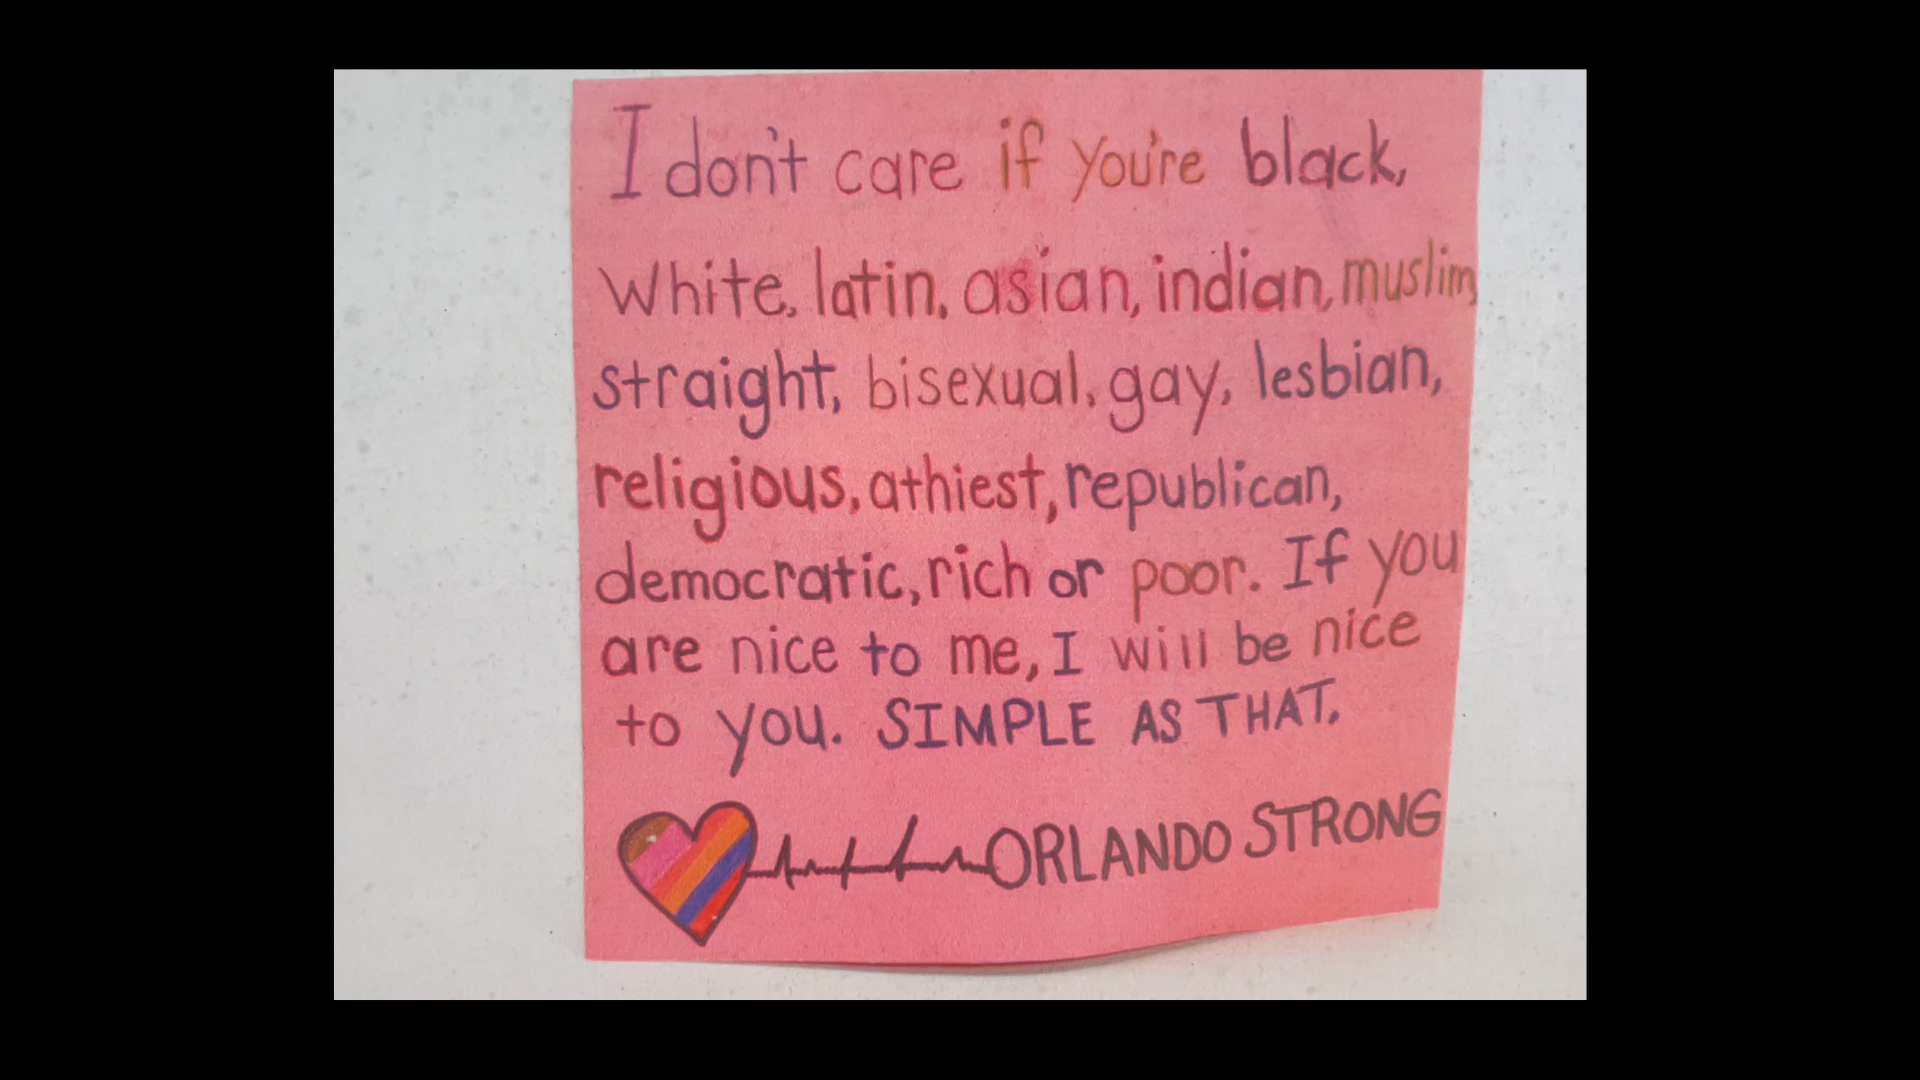 I don't care if you're black,
White, latin, asian, indian, muslim,
straight, bisexual, gay, lesbian,
religious, athiest, republican,
democratic, rich or poor. If you
are nice to me, I will be nice
to you. SIMPLE AS THAT.
ORLANDO STRONG